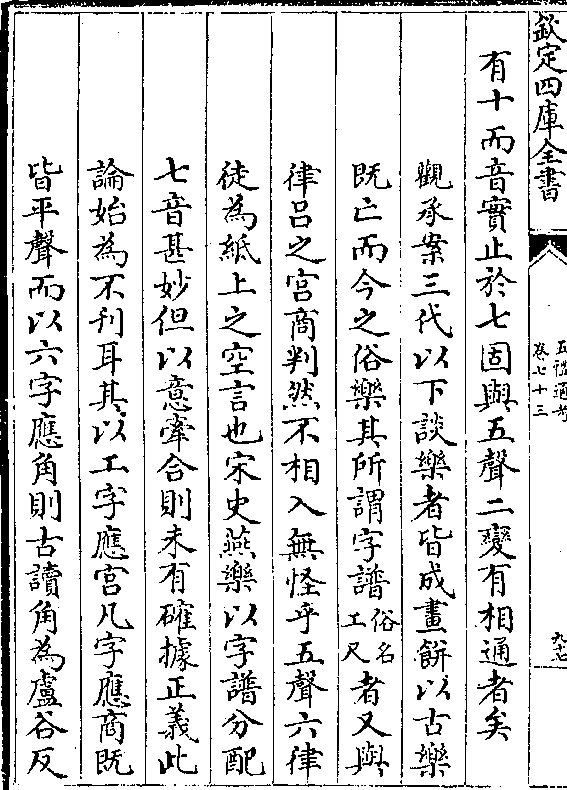 欽定四庫全書
五禮通考
卷七十三
九七
有十而音實止於七固與五聲二變有相通者矣
觀承案三代以下談樂者皆成畫餅以古樂
既亡而今之俗樂其所謂字譜俗名工尺者又與
律呂之宫商判然不相入無怪乎五聲六律
徒為紙上之空言也宋史燕樂以字譜分配
七音甚妙但以意牽合則未有確據正義此
論始為不刋耳其以工字應宫凡字應商既
皆平聲而以六字應角則古讀角為盧谷反